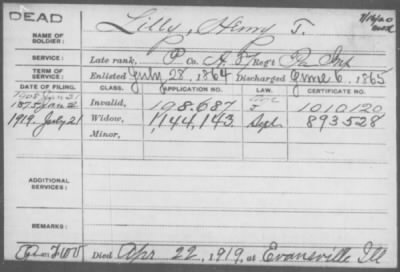 DEAD
NAME OF SOLDIER: Lilly, Henry T.
SERVICE: Late rank, P Co. A, 87 Reg't Pa Inf
TERM OF SERVICE: Enlisted July 28, 1864 Discharged June 6, 1865
DATE OF FILING. CLASS. APPLICATION NO. LAW. CERTIFICATE NO.
Invalid, 198.687 1010120
1919 July 21 Widow, 1,144,143 Sept. 893.528
Minor,
ADDITIONAL SERVICES:
REMARKS:
Died Apr 22, 1919, at Evansville Ill